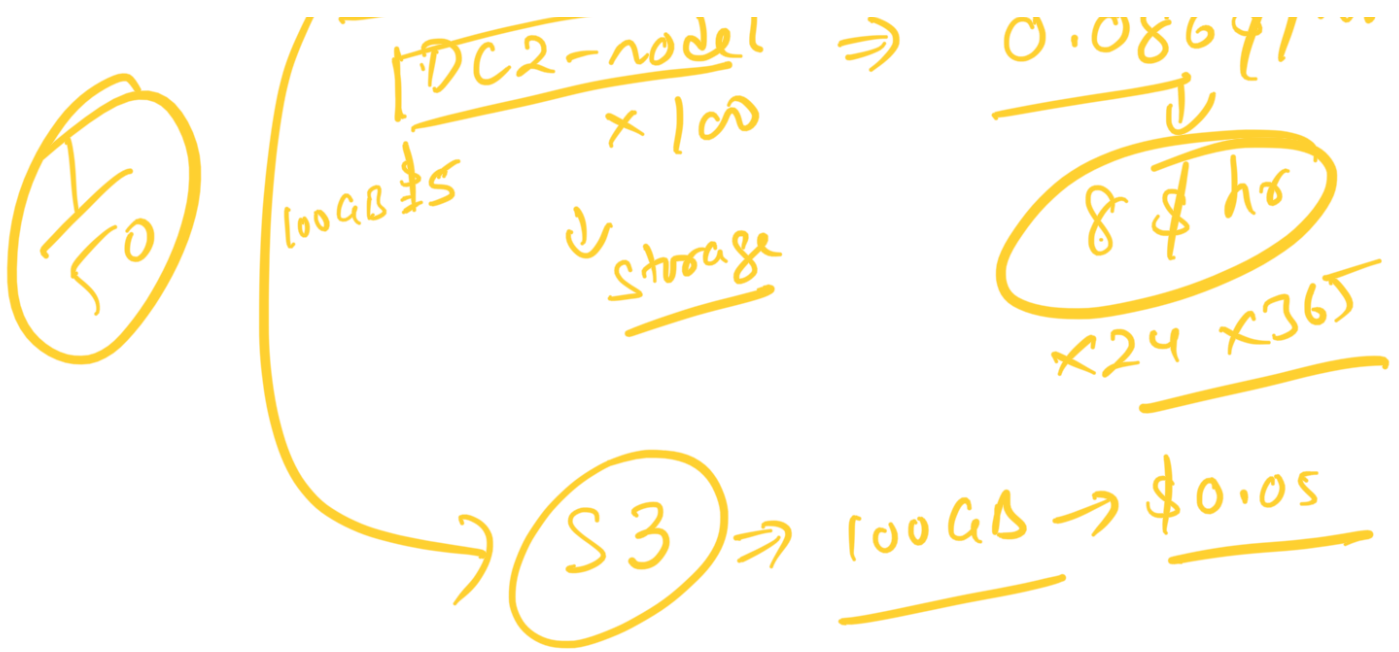 DC2-node ⇒ 0.0864
× 100
100GB $5
↓ storage
8 $ hr
× 24 × 365
1/50
S3 ⇒ 100GB → $0.05